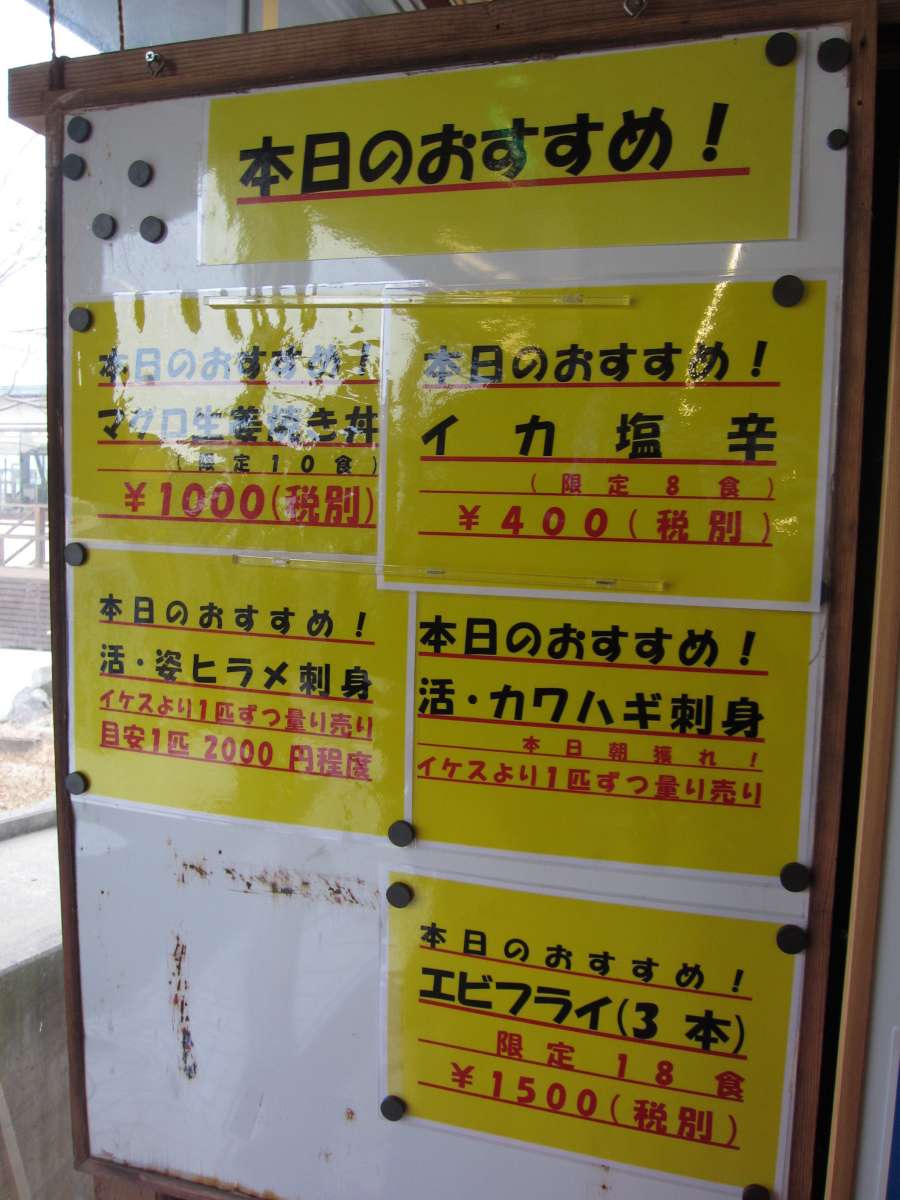 本日のおすすめ！
本日のおすすめ！
マグロ生姜焼き丼
(限定10食)
￥1000(税別)
本日のおすすめ！
イカ塩辛
(限定8食)
￥400(税別)
本日のおすすめ！
活・姿ヒラメ刺身
イケスより1匹ずつ量り売り
目安1匹 2000 円程度
本日のおすすめ！
活・カワハギ刺身
本日朝獲れ！
イケスより1匹ずつ量り売り
本日のおすすめ！
エビフライ(3 本)
限定18食
￥1500(税別)